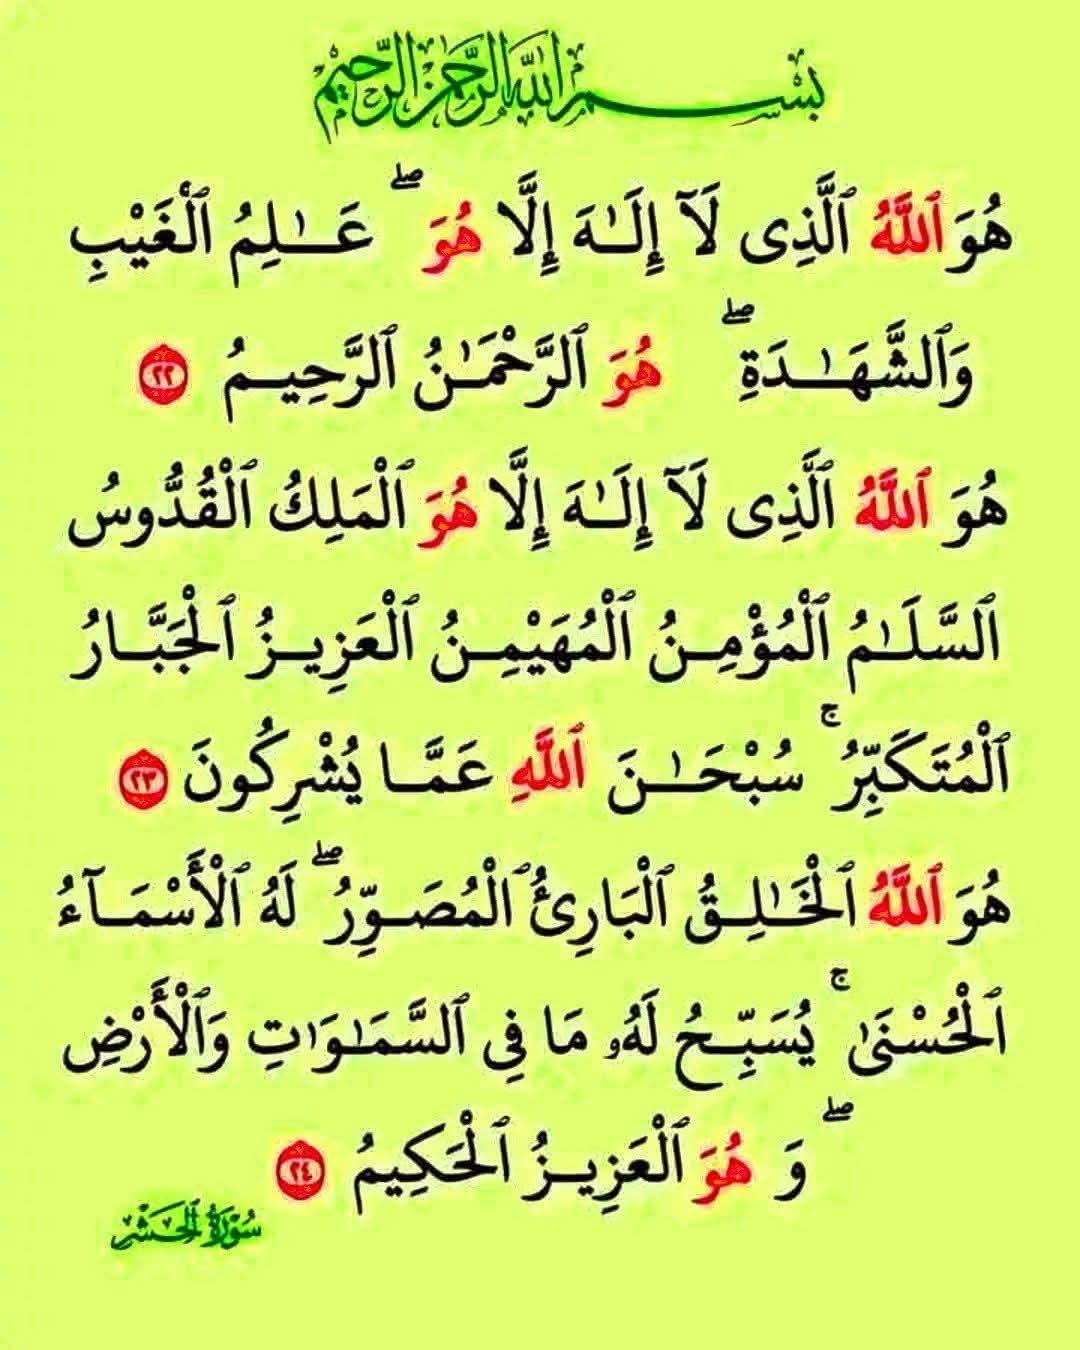 بِسْمِ اللَّهِ الرَّحْمَٰنِ الرَّحِيمِ
هُوَ ٱللَّهُ ٱلَّذِى لَآ إِلَـٰهَ إِلَّا هُوَ ۖ عَـٰلِمُ ٱلْغَيْبِ
وَٱلشَّهَـٰدَةِ ۖ هُوَ ٱلرَّحْمَـٰنُ ٱلرَّحِيمُ ٢٢
هُوَ ٱللَّهُ ٱلَّذِى لَآ إِلَـٰهَ إِلَّا هُوَ ٱلْمَلِكُ ٱلْقُدُّوسُ
ٱلسَّلَـٰمُ ٱلْمُؤْمِنُ ٱلْمُهَيْمِنُ ٱلْعَزِيزُ ٱلْجَبَّارُ
ٱلْمُتَكَبِّرُ ۚ سُبْحَـٰنَ ٱللَّهِ عَمَّا يُشْرِكُونَ ٢٣
هُوَ ٱللَّهُ ٱلْخَـٰلِقُ ٱلْبَارِئُ ٱلْمُصَوِّرُ ۖ لَهُ ٱلْأَسْمَآءُ
ٱلْحُسْنَىٰ ۚ يُسَبِّحُ لَهُۥ مَا فِى ٱلسَّمَـٰوَٰتِ وَٱلْأَرْضِ
ۖ وَ هُوَ ٱلْعَزِيزُ ٱلْحَكِيمُ ٢٤
سُورَةُ ٱلْحَشْرِ